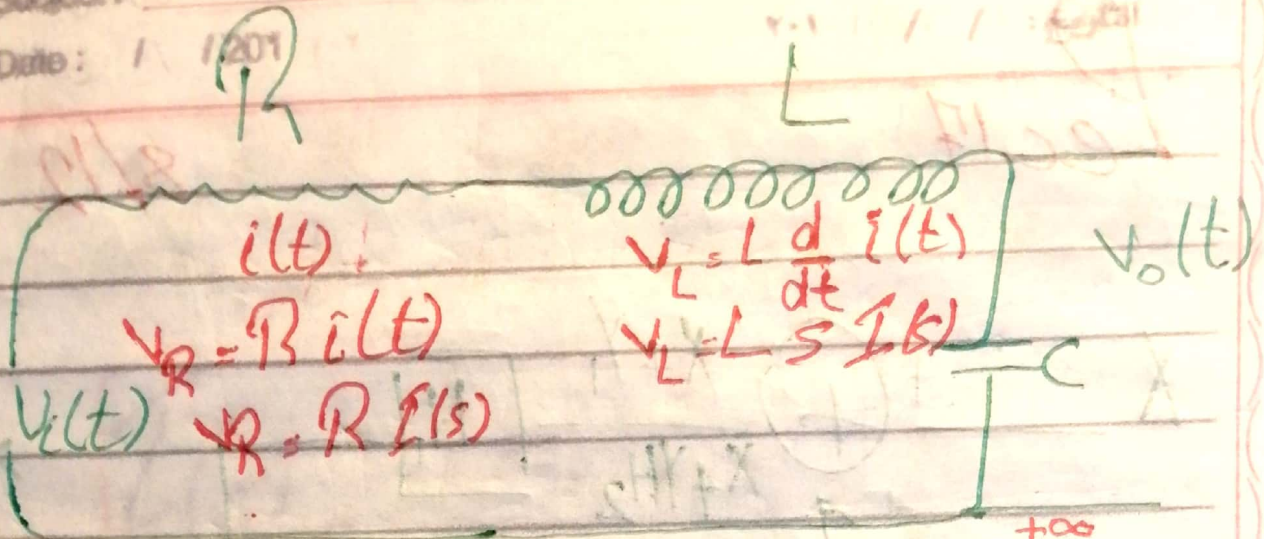 Date: / /201
التاريخ: / / ٢٠١
R L
i(t)
V_L = L d/dt i(t)
V_o(t)
V_R = R i(t)
V_L = L S I(s)
C
V_i(t)
V_R = R I(s)
+∞